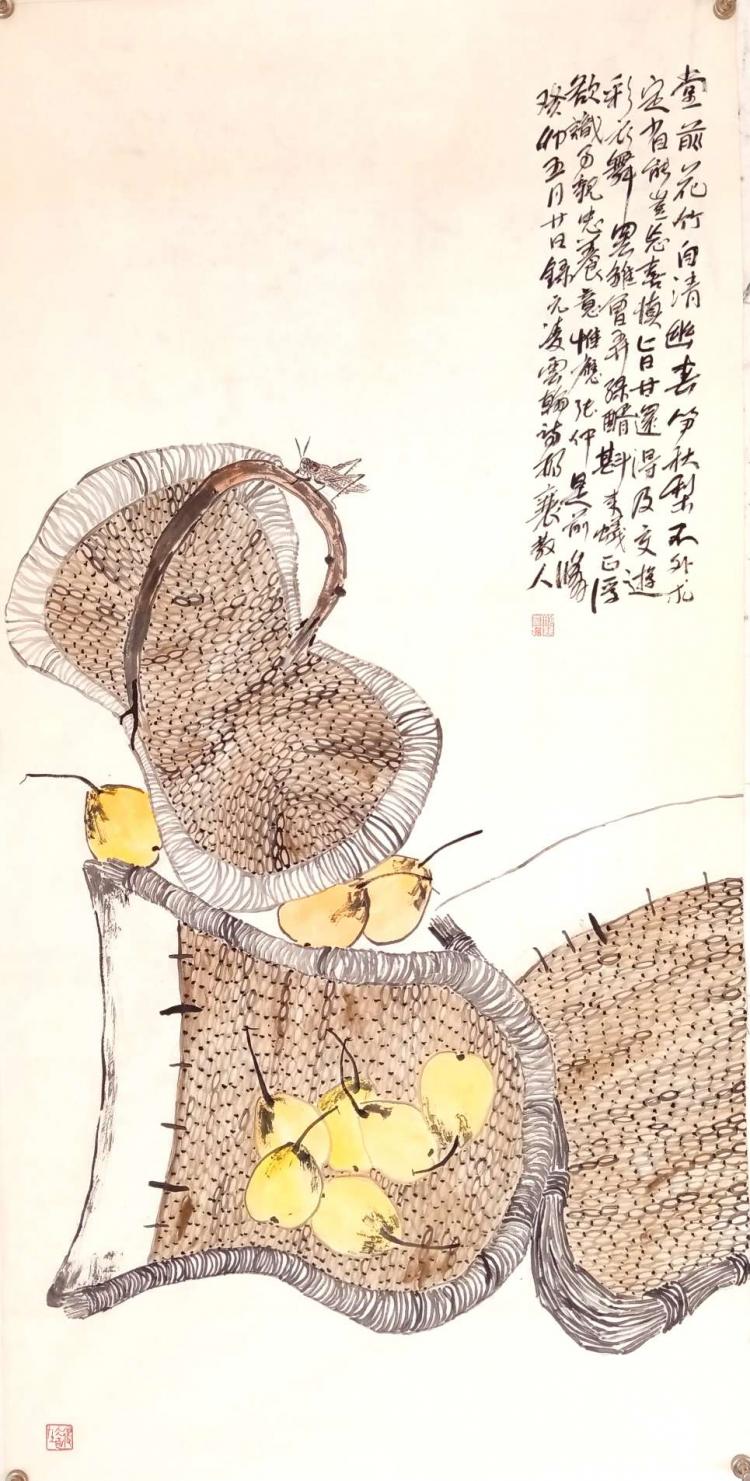 堂前花竹自清幽春笋秋梨不外求
定省能忘喜慎旨甘還得及交遊
彩衣舞罷雛曾弄綠醑斟來蟻正浮
欲識事親忠養意惟應張仲是前修
癸卯五月廿日錄元凌雲翰詩於襄教人